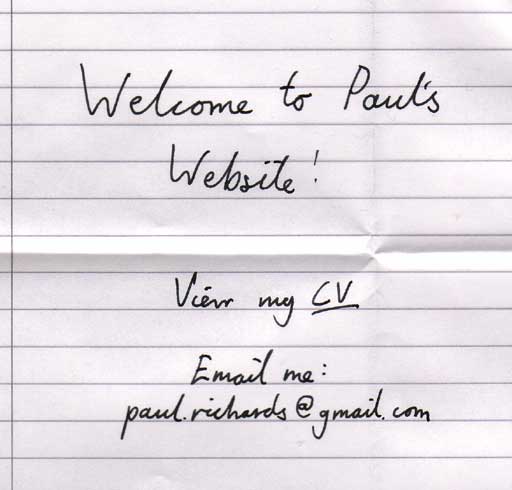 Welcome to Paul's
Website!
View my CV
Email me:
paul.richards@gmail.com